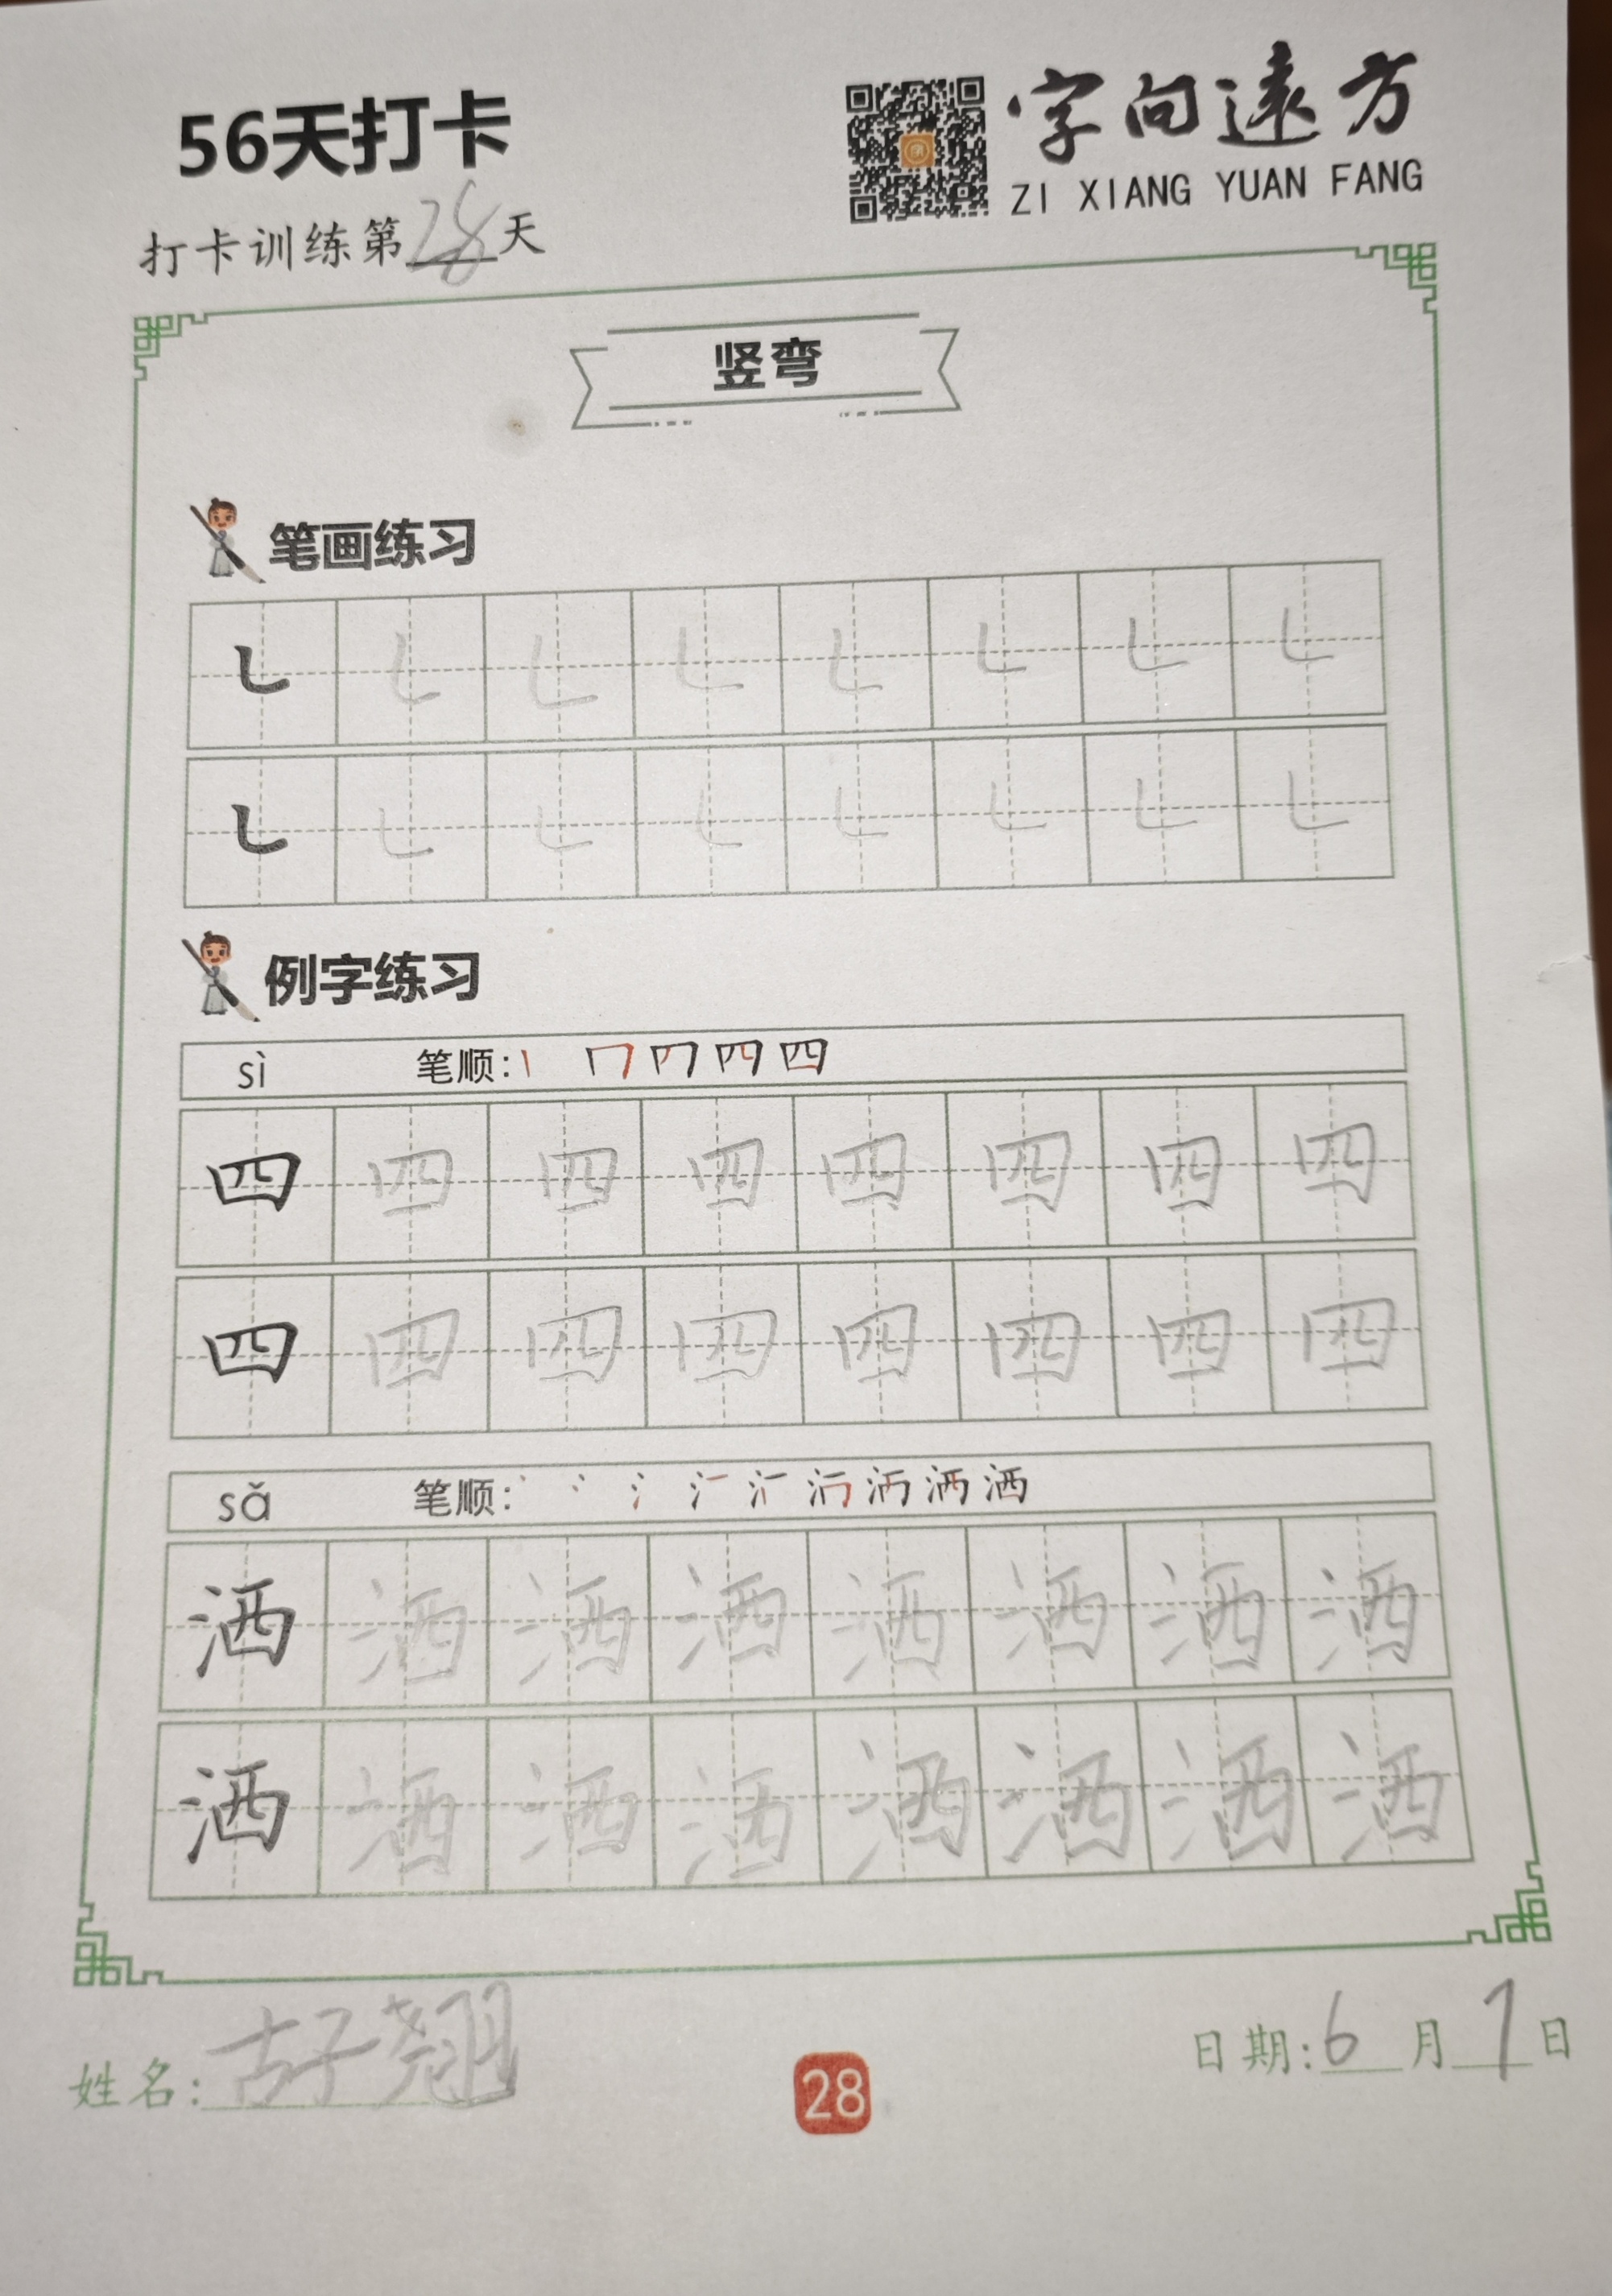 56天打卡
字向遠方
ZI XIANG YUAN FANG
打卡训练第28天
竖弯
笔画练习
例字练习
sì 笔顺: 四
四 四 四 四 四 四 四 四
四 四 四 四 四 四 四 四
sǎ 笔顺: 洒
洒 洒 洒 洒 洒 洒 洒 洒
洒 洒 洒 洒 洒 洒 洒 洒
姓名: 古子翘
28
日期: 6月7日